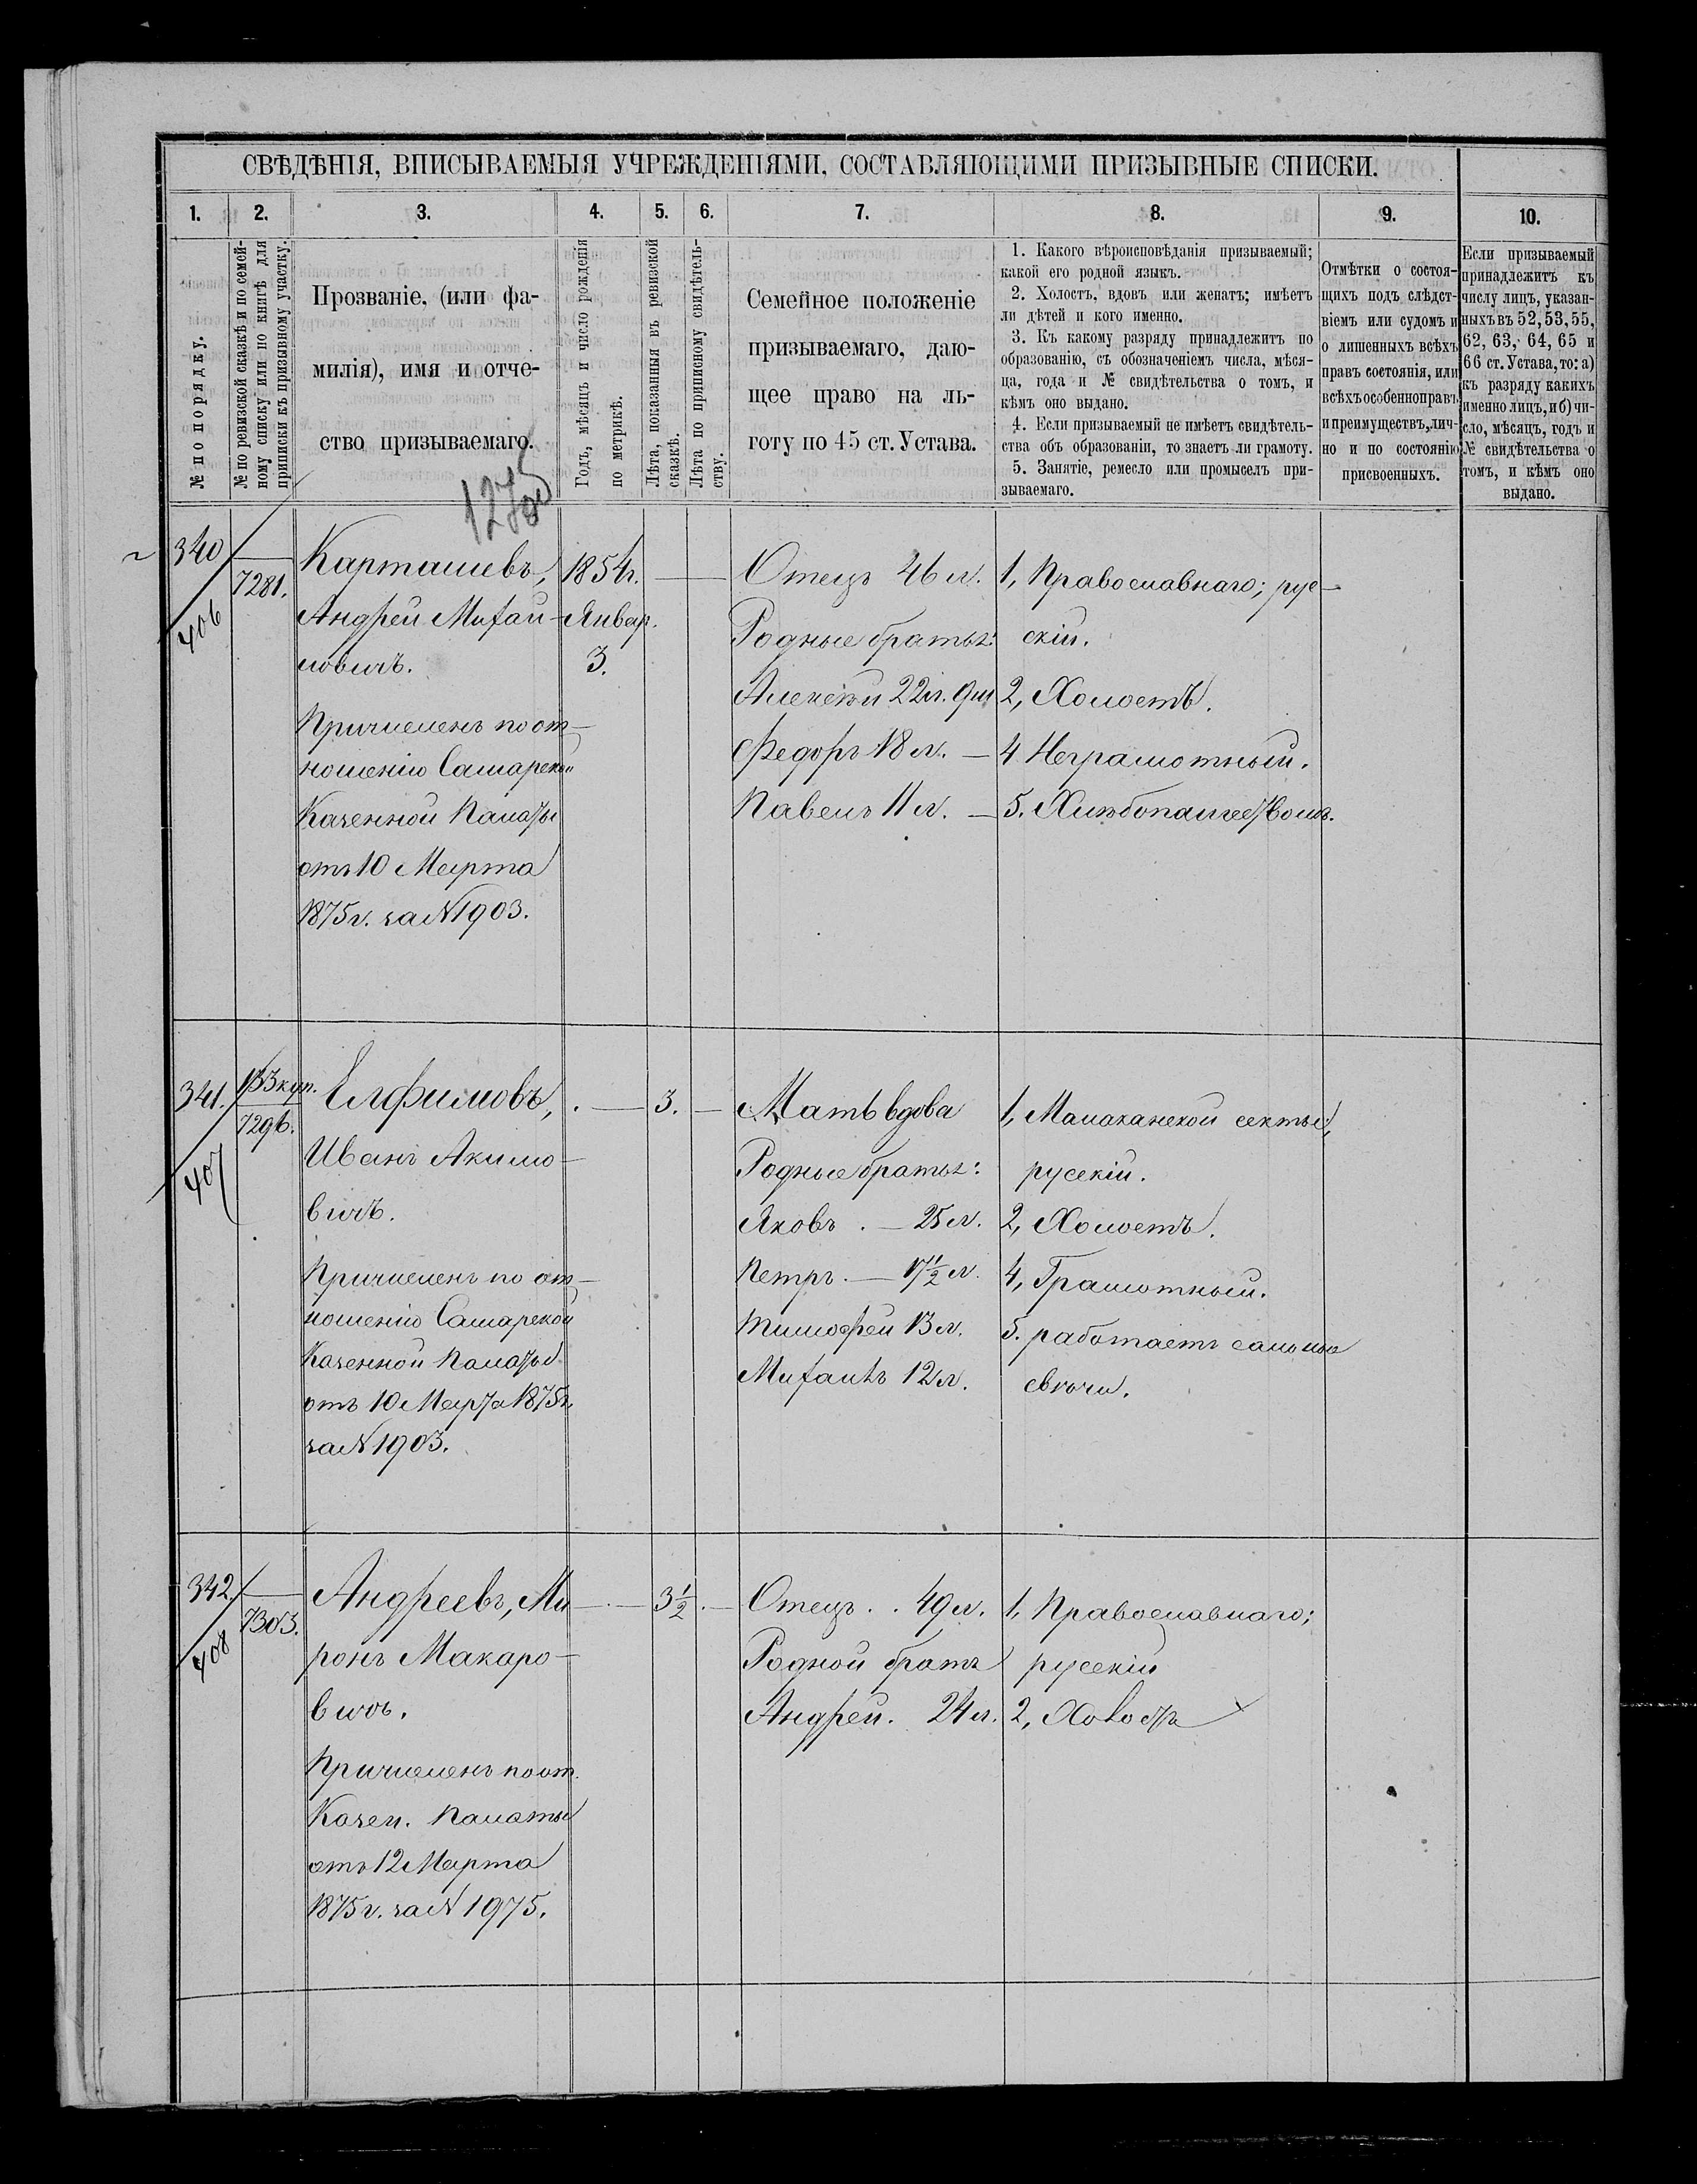 СВѢДѢНІЯ, ВПИСЫВАЕМЫЯ УЧРЕЖДЕНІЯМИ, СОСТАВЛЯЮЩИМИ ПРИЗЫВНЫЕ СПИСКИ.
1. 2. 3. 4. 5. 6. 7. 8. 9. 10.
№ по порядку.
№ по ревизской сказкѣ и по семей-
ному списку или по книгѣ для
приписки къ призывному участку.
Прозваніе, (или фа-
милія), имя и отче-
ство призываемаго.
Годъ, мѣсяцъ и число рожденія
по метрикѣ.
Лѣта, показанныя въ ревизской
сказкѣ.
Лѣта по приписному свидѣтель-
ству.
Семейное положеніе
призываемаго, даю-
щее право на ль-
готу по 45 ст. Устава.
1. Какого вѣроисповѣданія призываемый;
какой его родной языкъ.
2. Холостъ, вдовъ или женатъ; имѣетъ
ли дѣтей и кого именно.
3. Къ какому разряду принадлежитъ по
образованію, съ обозначеніемъ числа, мѣся-
ца, года и № свидѣтельства о томъ, и
кѣмъ оно выдано.
4. Если призываемый не имѣетъ свидѣтель-
ства объ образованіи, то знаетъ ли грамоту.
5. Занятіе, ремесло или промыселъ при-
зываемаго.
Отмѣтки о состоя-
щихъ подъ слѣдст-
віемъ или судомъ и
о лишенныхъ всѣхъ
правъ состоянія, или
всѣхъ особенно правъ
и преимуществъ, лич-
но и по состоянію
присвоенныхъ.
Если призываемый
принадлежитъ къ
числу лицъ, указан-
ныхъ въ 52, 53, 55,
62, 63, 64, 65 и
66 ст. Устава, то: а)
къ разряду какихъ
именно лицъ, и б) чи-
сло, мѣсяцъ, годъ и
№ свидѣтельства о
томъ, и кѣмъ оно
выдано.
340
406
7281.
Карташевъ,
Андрей Михай-
ловичъ.
Причисленъ по от-
ношенію Самарской
Казенной Палаты
отъ 10 Марта
1875 г. за № 1903.
1854 г.
Январ.
3.
Отецъ 46 л.
Родные братья:
Алексѣй 22 л. 9 м
Федоръ 18 л. —
Павелъ 11 л. —
1, Православнаго; рус-
скій.
2, Холостъ.
4 Неграмотный.
5. Хлѣбопашествомъ.
341.
407
153 куп.
7296.
Елфимовъ,
Иванъ Акимо-
вичъ.
Причисленъ по от-
ношенію Самарской
Казенной Палаты
отъ 10 Марта 1875 г.
за № 1903.
3.
Мать вдова
Родные братья:
Яковъ . — 25 л.
Петръ . — 17 1/2 л.
Тимофей 13 л.
Михаилъ 12 л.
1, Малаканской секты,
русскій.
2, Холостъ.
4, Грамотный.
5. работаетъ сальныя
свѣчи.
342.
408
7303.
Андреевъ, Ми-
ронъ Макаро-
вичъ.
Причисленъ по от.
Казен. Палаты
отъ 12 Марта
1875 г. за № 1975.
3 1/2.
Отецъ . . 49 л.
Родной братъ
Андрей. 24 л.
1, Православнаго;
русскій
2, Холостъ